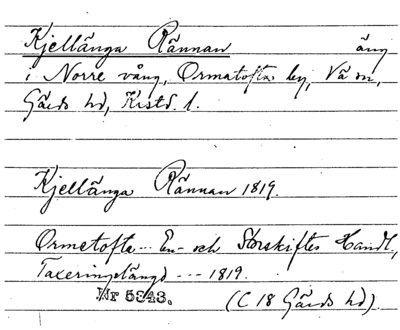 Kjellänga Rännan äng
i Norre vång, Ormatofta by, Vä sn,
Gärds hd, Kristd. l.
Kjellänga Rännan 1819.
Ormetofta... En- och Storskiftes Handl.,
Taxeringslängd --- 1819.
Nr 5343. (C 18 Gärds hd).